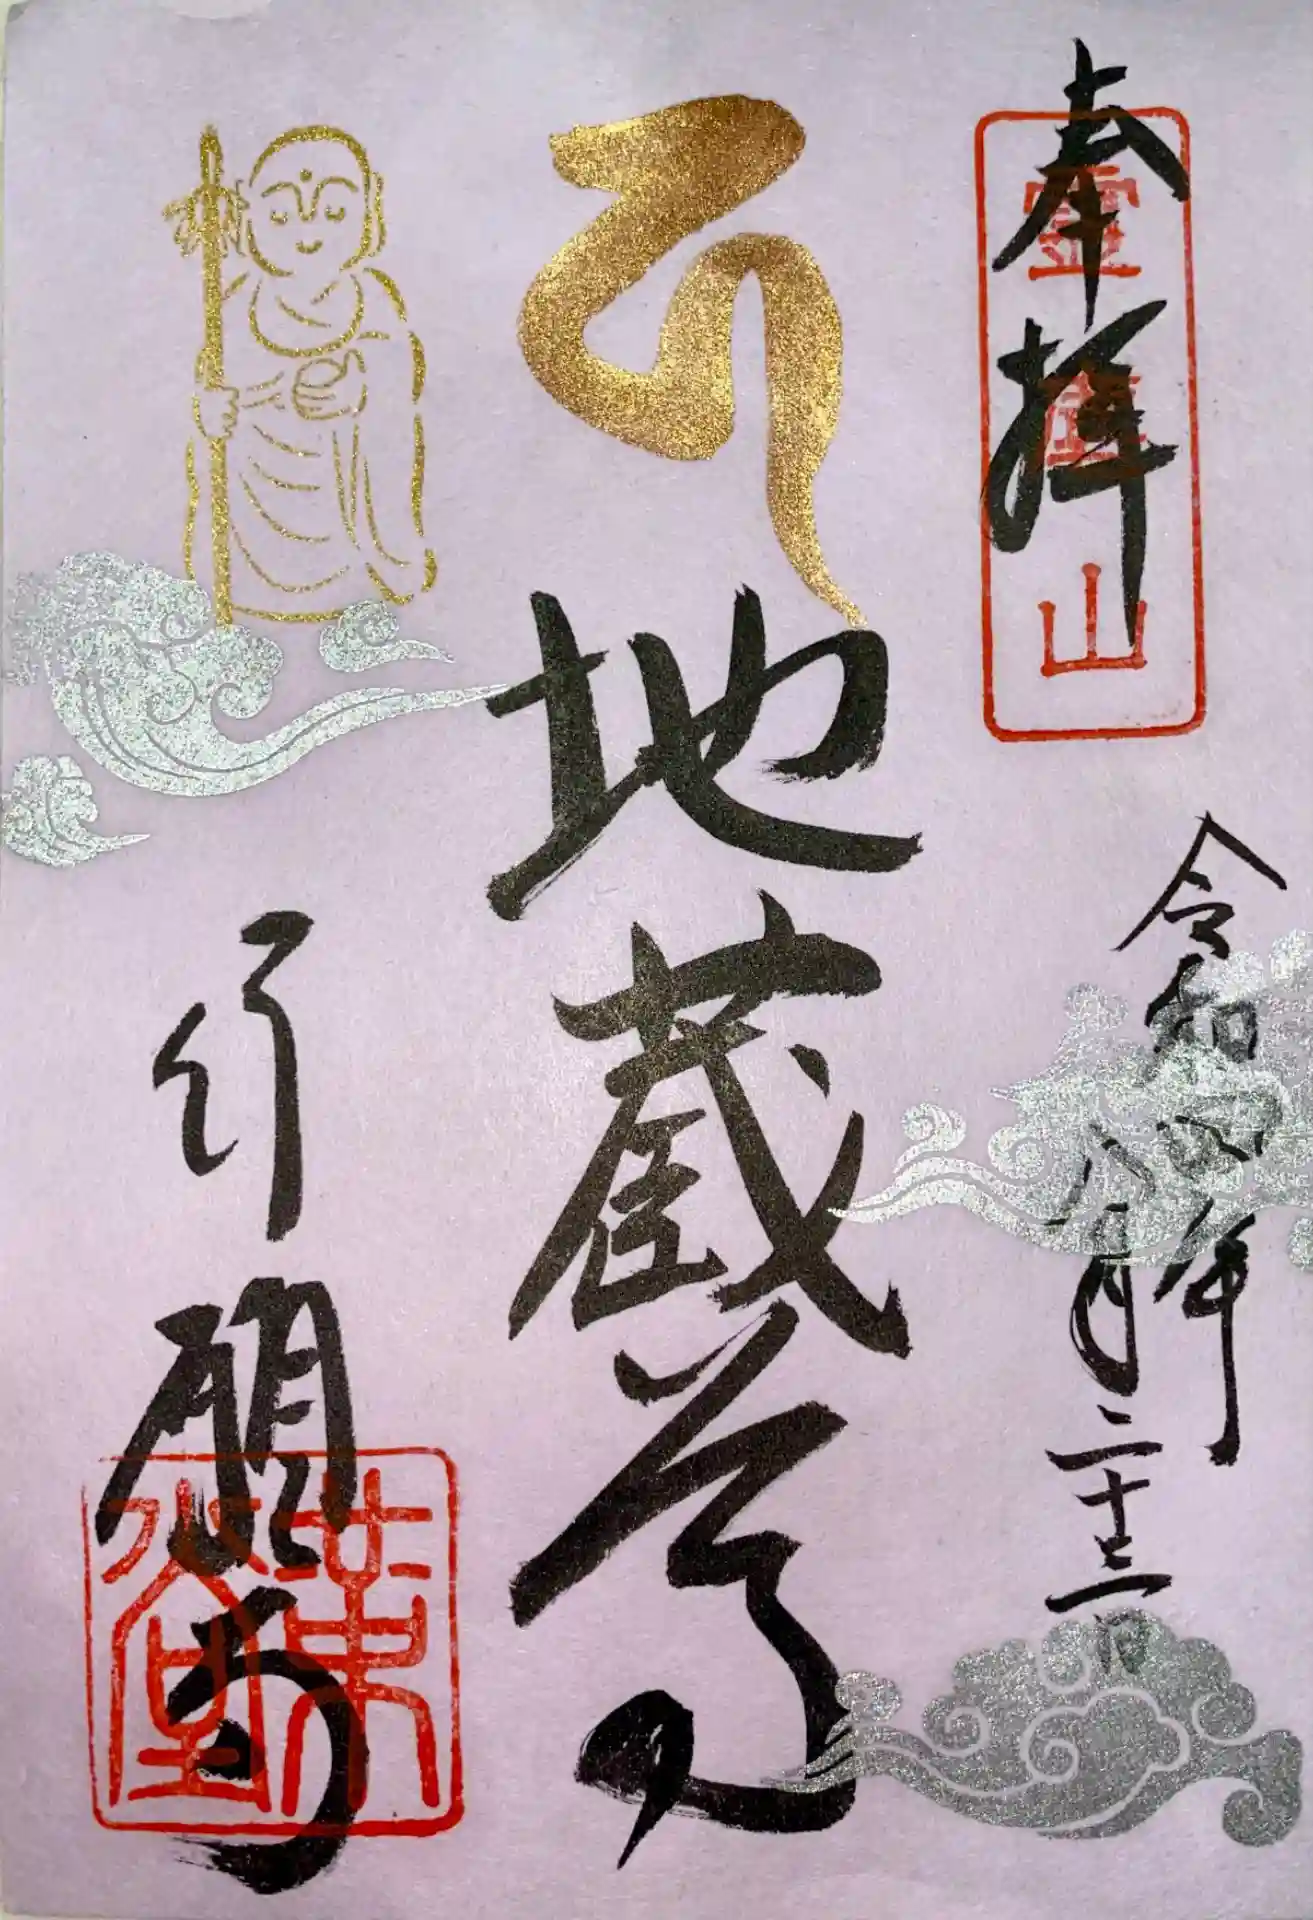 奉拝
霊麀山
令和四年
八月二十三日
ह
地蔵尊
行願寺
革堂